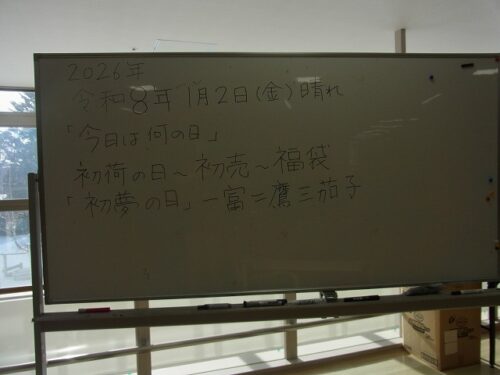 2026年
令和8年1月2日(金)晴れ
「今日は何の日」
初荷の日~初売~福袋
「初夢の日」一富二鷹三茄子